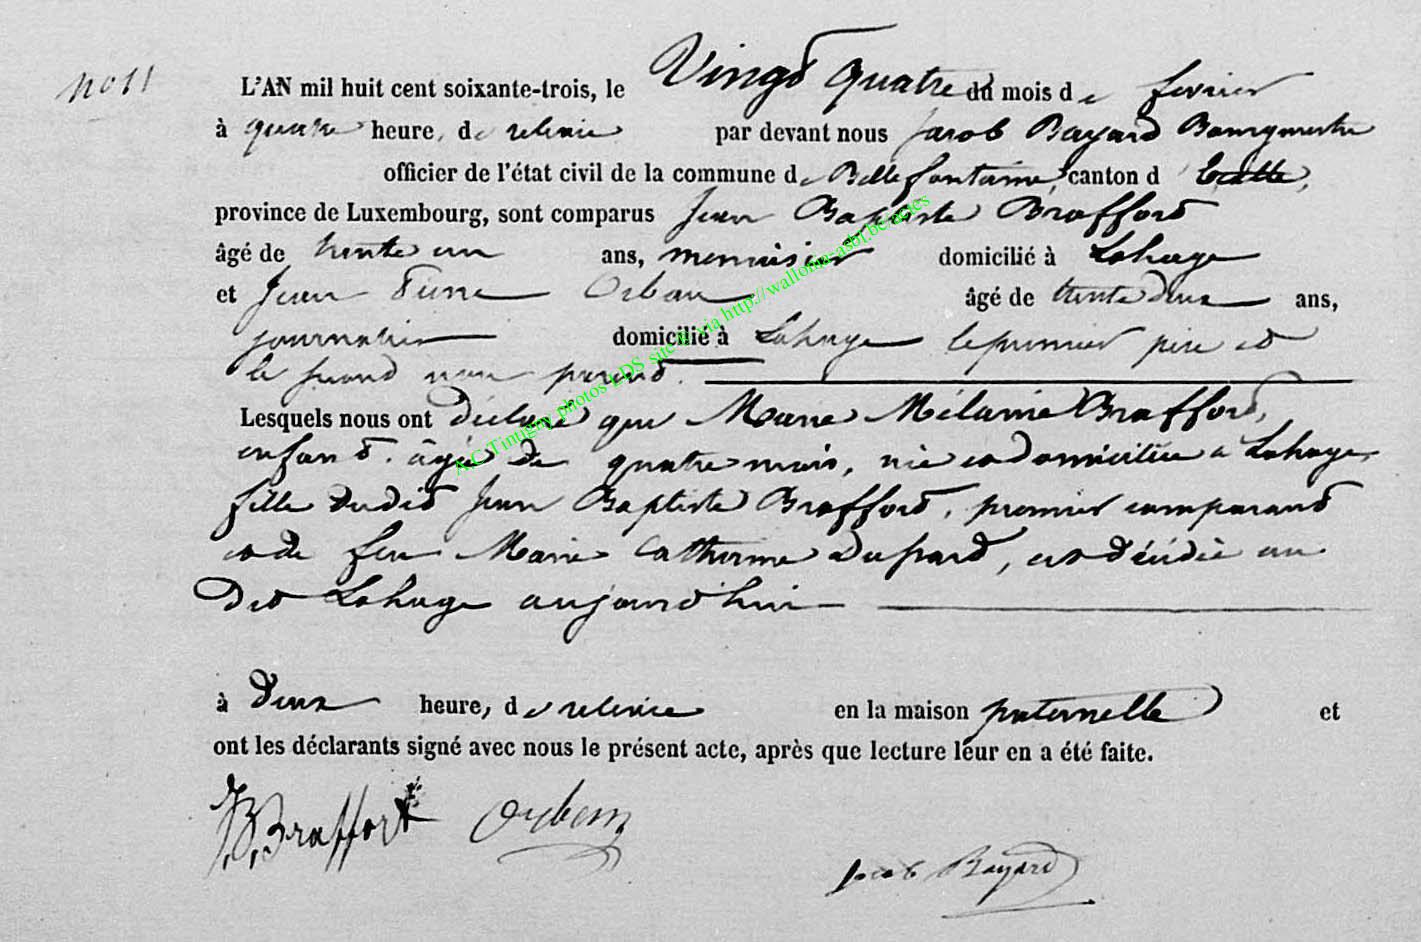 no 11
L'AN mil huit cent soixante-trois, le Vingt quatre du mois de fevrier
à quatre heure, de relevée par devant nous Jacob Bayard Bourgmestre
officier de l'état civil de la commune de Bellefontaine, canton d'Etalle,
province de Luxembourg, sont comparus Jean Baptiste Braffort
âgé de trente un ans, menuisier domicilié à Lahage
et Jean Pierre Orban âgé de trente deux ans,
journalier domicilié à Lahage le premier père et
le second non parent.
Lesquels nous ont déclaré que Marie Mélanie Braffort,
enfant. âgée de quatre mois, née et domiciliée à Lahage
fille dudit Jean Baptiste Braffort, premier comparant
et de feu Marie Catherine, est décédée au
dit Lahage aujourd'hui
à deux heure, de relevée en la maison paternelle et
ont les déclarants signé avec nous le présent acte, après que lecture leur en a été faite.
J,B,Braffort Orban
Jacob Bayard
A.C. Tintigny photos LDS site & via http://wallonia-asbl.be/actes